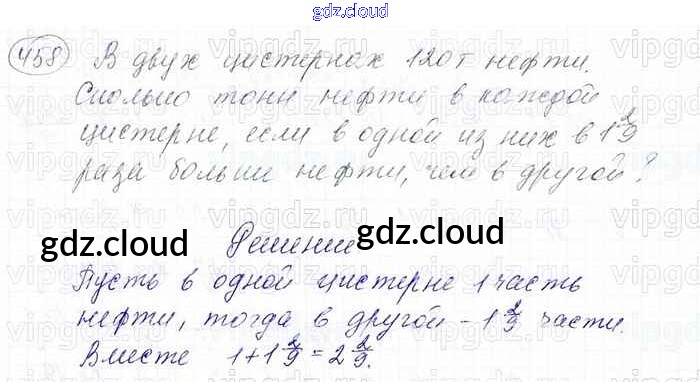 gdz.cloud
458 В двух цистернах 120т нефти.
Сколько тонн нефти в каждой
цистерне, если в одной из них в 1 2/9
раза больше нефти, чем в другой?
gdz.cloud Решение gdz.cloud
Пусть в одной цистерне 1 часть
нефти, тогда в другой - 1 2/9 части.
Вместе 1+1 2/9 = 2 2/9.